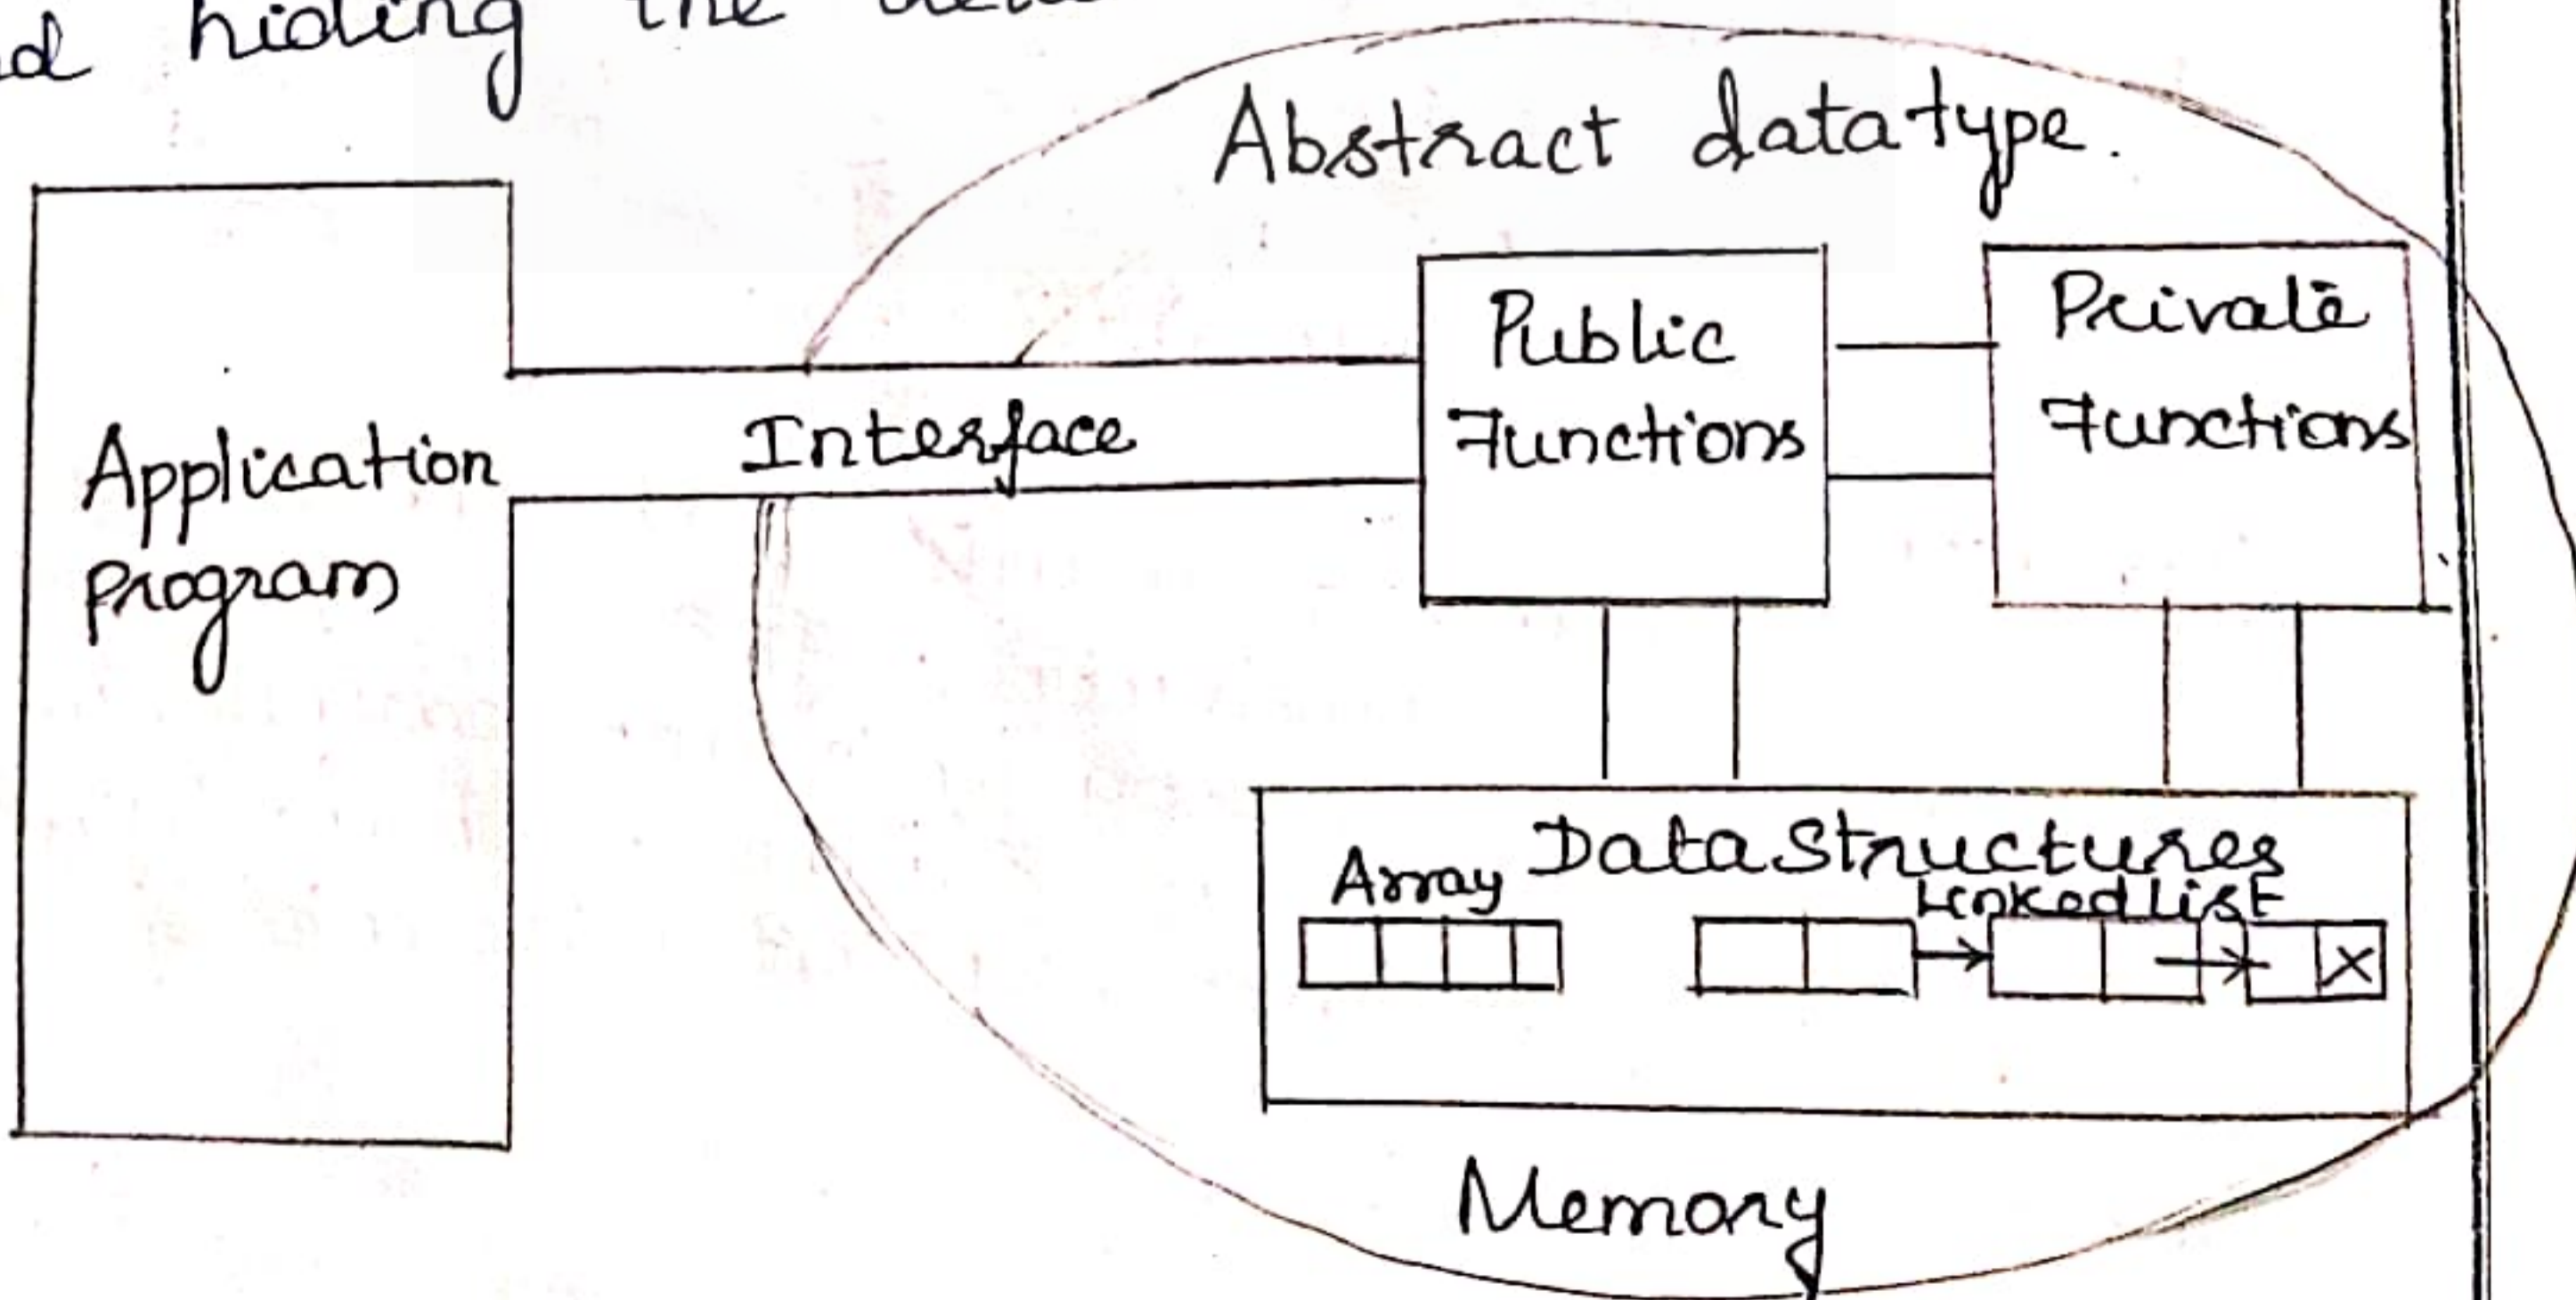 hiding the
Abstract datatype.
Application
program
Interface
Public
Functions
Private
Functions
Data Structures
Array
Linked List
Memory